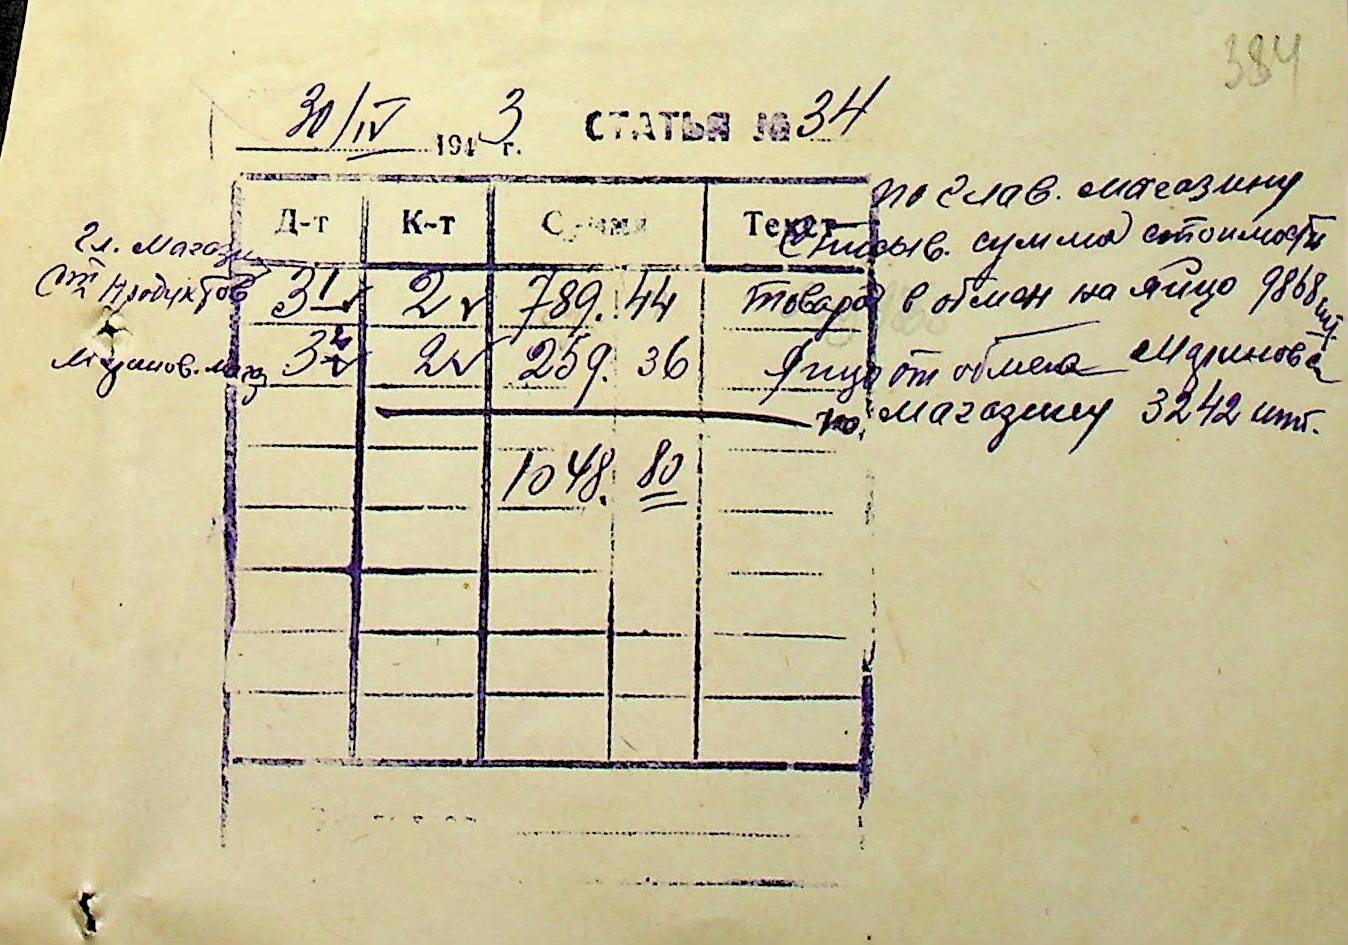 384
30/IV 1943 г. СТАТЬЯ № 34
Д-т К-т Сумма Текст
по Глав. магазину
Гл. магаз. Списыв. сумма стоимости
Продуктов 31 2 789.44 Товаров в обмен на яйцо 9868 шт.
магаз 2 259.36 Яйцо от обмена
по магазину 3242 шт.
1048.80